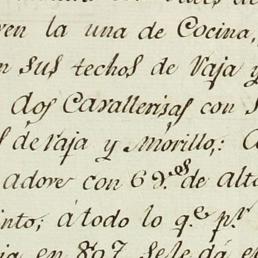 ven la una de Cocina,
n sus techos de Vaja y
dos Cavallerisas con s
s de Vaja y Morillo,: C
adore con 6 9.as de Alto
into; á todo lo q.e p.r
ia en 807 se le dá e